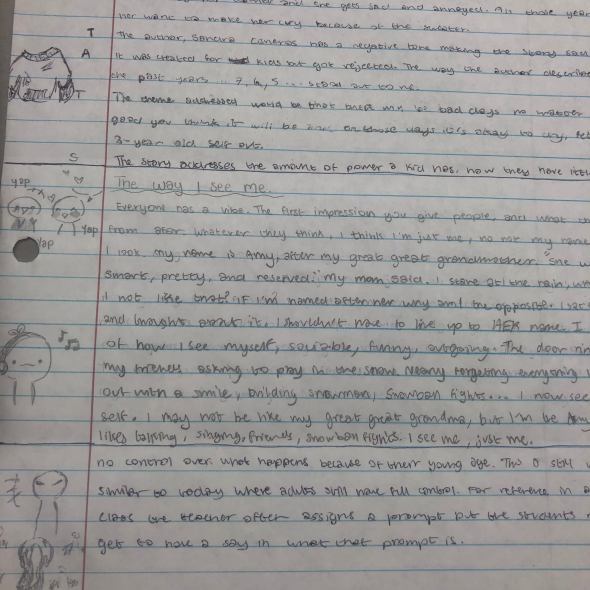 and she gets sad and annoyed. All those years
her want to make her cry because of the sweater.
T
The author, Sandra has a negative tone making the story sad
A
It was created for kids but got rejected. The way the author describes
the past years ... 7, 6, 5 ... stood out to me.
The theme addressed would be that there be bad days no matter
T
good you think it will be and on those days it's okay to cry, let
3-year old self out.
S
The story addresses the amount of power a kid has, how they have little
The way I see me.
yap
Everyone has a vibe. The first impression you give people, and what
from afar, whatever they think, I think I'm just me, no not my name
yap
yap
I look. my name is Amy, after my great great grandmother. "She w
smart, pretty, and reserved." my mom said. I stare at the rain, wh
I not like that? If I'm named after her why am I the opposite. I sat
and thought about it, I shouldn't have to live up to HER name. I
of how I see myself, sociable, funny, outgoing. The door rin
my friends asking to play in the snow. Nearly forgeting everything I
out with a smile, building snowman, snowball fights... I now see
self. I may not be like my great great grandma, but I'm be Amy
likes talking, singing, friends, snowball fights. I see me, just me.
no control over what happens because of their young age. This is still
similar to today where adults still have full control. For reference in a
class the teacher often assigns a prompt but the students
get to have a say in what that prompt is.